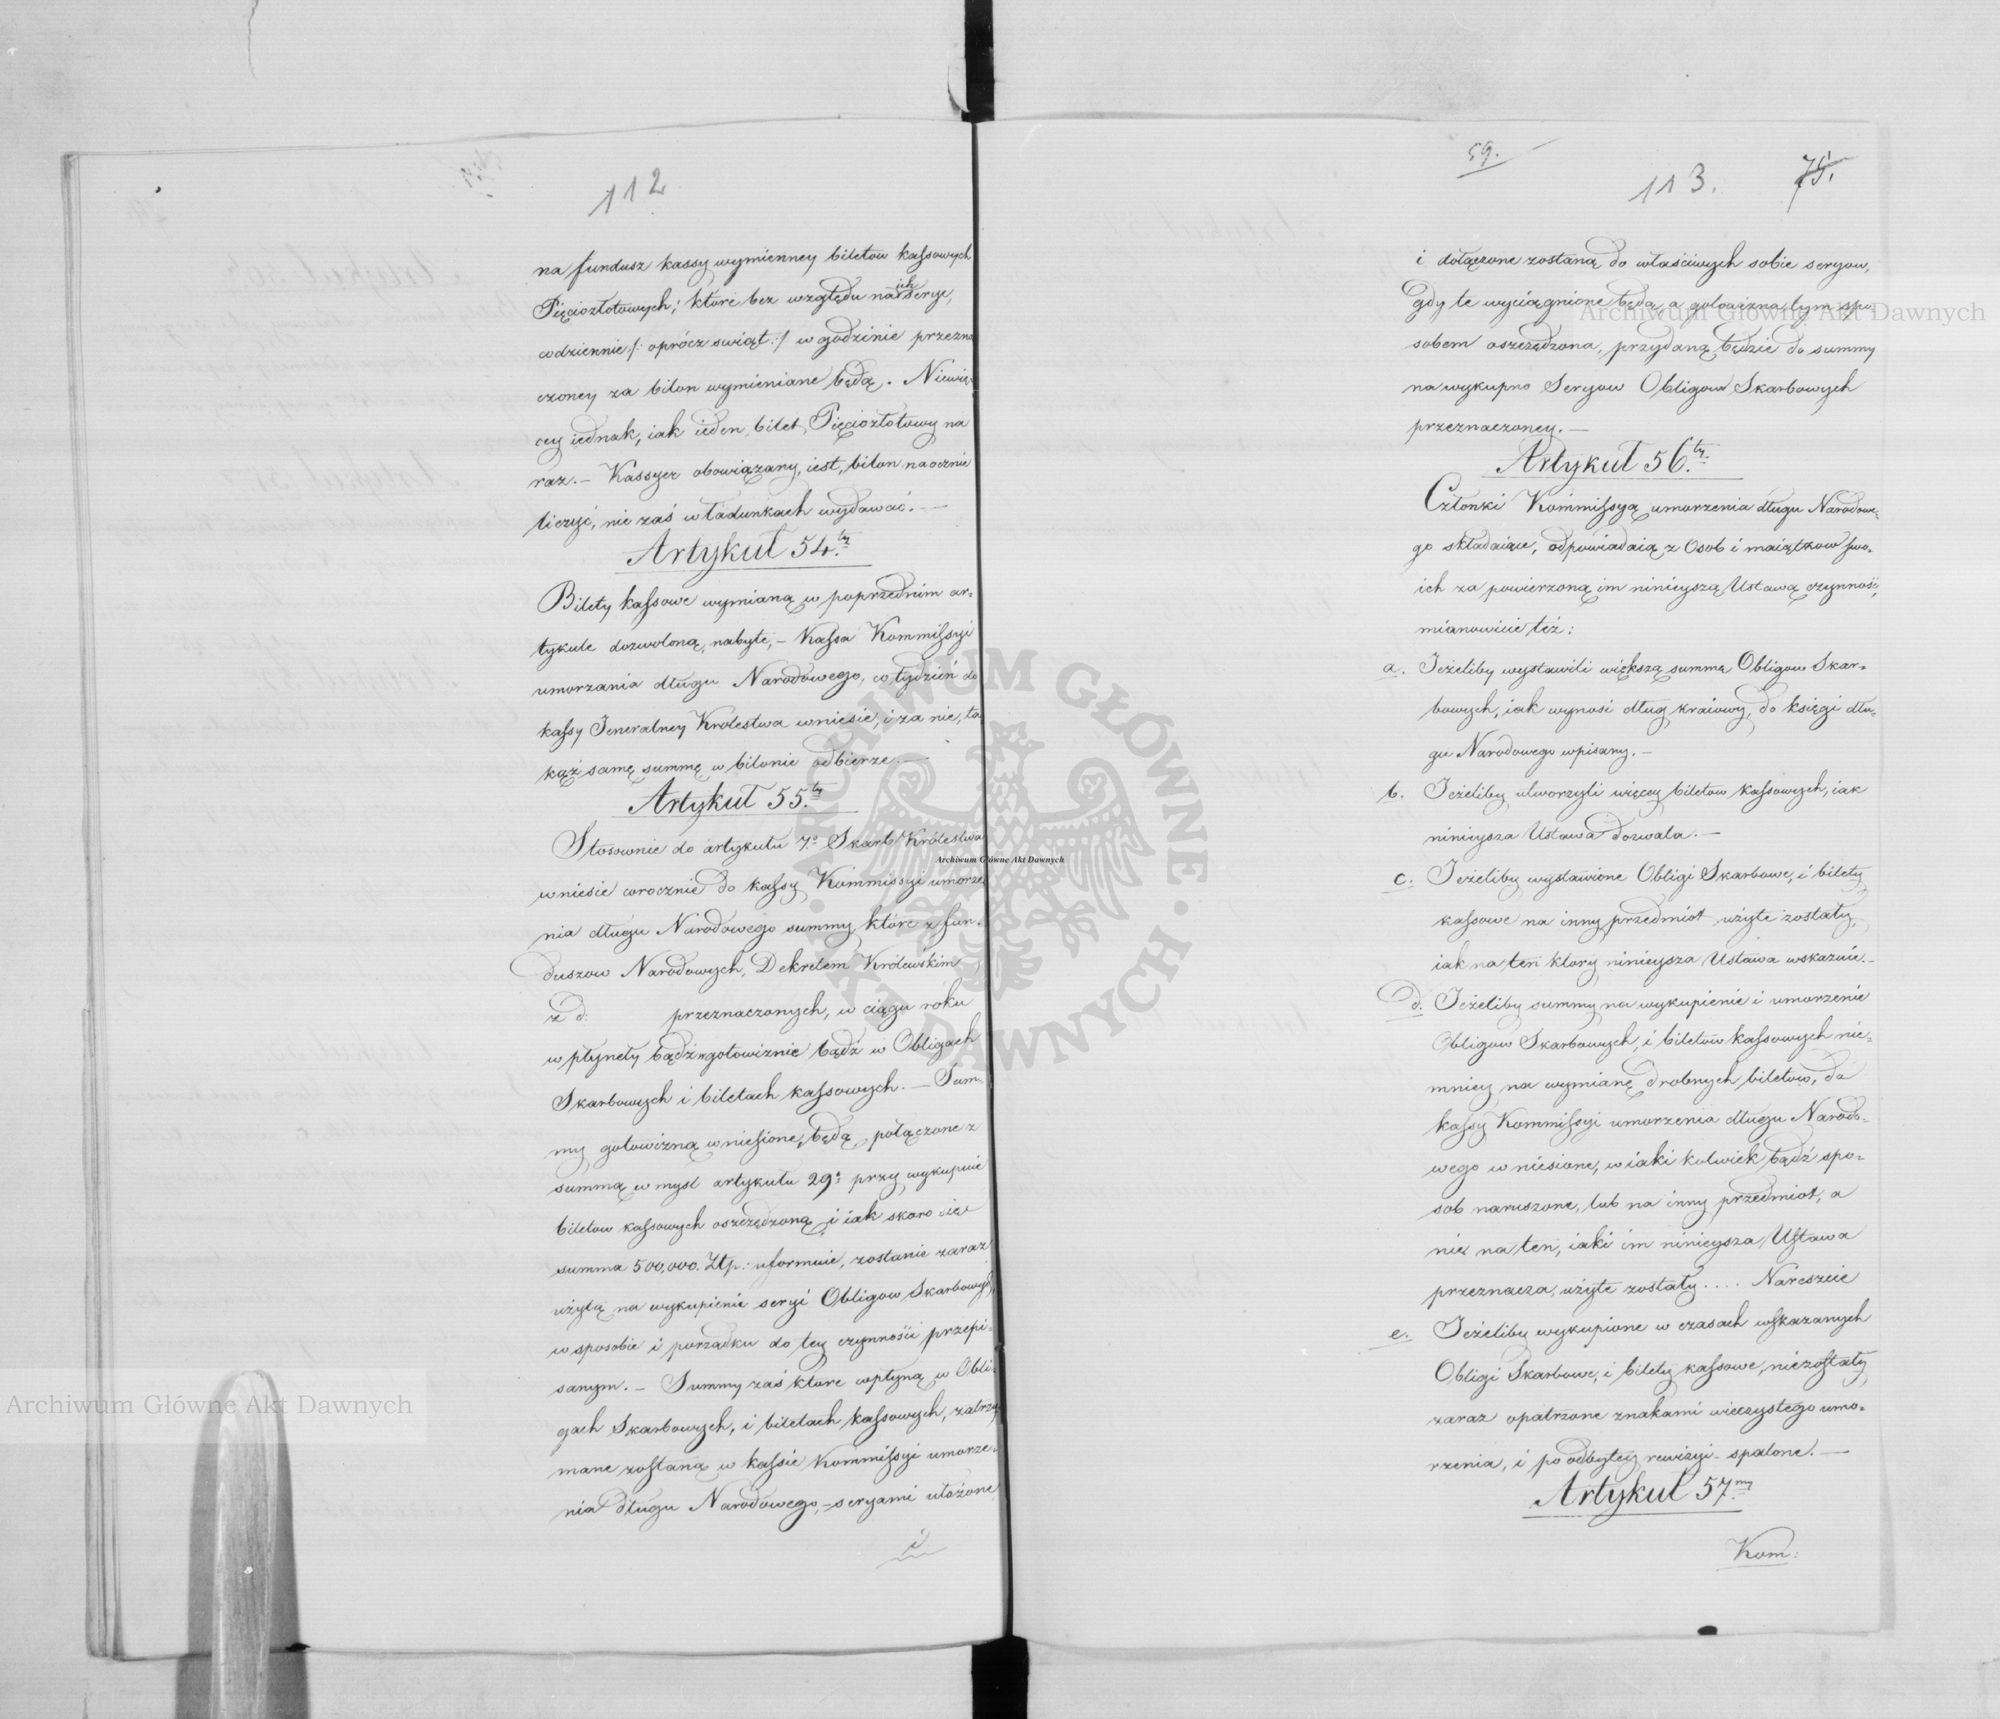 112
na fundusz kassy wymienney biletow kassowych
Pięciozłotowych; które bez względu na ich serye,
codziennie /: oprócz swiąt :/ w godzinie przezna
czoney za bilon wymieniane będą. Niewię-
cey iednak, iak ieden bilet Pięciozłotowy na
raz. – Kassyer obowiązany iest, bilon naocznie
liczyć, nie zaś w ładunkach wydawać. –
Artykuł 54.ty
Bilety kassowe wymianą w poprzednim ar-
tykule dozwoloną, nabyte, – Kassa Kommissyi
umorzania długu Narodowego, co tydzień do
kassy Jeneralney Krolestwa wniesie, i za nie, ta
kąż samę summę w bilonie odbierze. –
Artykuł 55.ty
Stosownie do artykułu 7º Skarb Królestwa
wniesie corocznie do kassy Kommissyi umorze
nia długu Narodowego summy, które z fun-
duszow Narodowych, Dekretem Królewskim
z d: przeznaczonych, w ciągu roku
wpłynęły bądź w gotowiznie bądź w Obligach
Skarbowych i biletach kassowych. – Sum-
my gotowizną wniesione, będą połączone z
summą w mysl artykułu 29º przy wykupnie
biletow kassowych oszczędzoną, i iak skoro się
summa 500,000. Złp: uformuie, zostanie zaraz
użytą na wykupienie seryi Obligow Skarbowych,
w sposobie i porządku do tey czynności przepi-
sanym. – Summy zaś ktore wpłyną w Obli-
gach Skarbowych, i biletach kassowych, zatrzy
mane zostaną w kassie Kommissyi umorze-
nia długu Narodowego, – seryami ułożone
i
59.
113.
75.
i dołączone zostaną do właściwych sobie seryow,
gdy te wyciągnione będą, a gotowizna tym spo
sobem oszczędzona, przydaną będzie do summy
na wykupno Seryow Obligow Skarbowych
przeznaczoney. –
Artykuł 56.ty
Członki Kommissyą umorzenia długu Narodowe-
go składaiące, odpowiadaią z Osob i maiątkow swo-
ich za powierzoną im ninieyszą Ustawą czynność,
mianowicie też:
a. Jeżeliby wystawili większą summę Obligow Skar-
bowych, iak wynosi dług kraiowy, do księgi dłu-
gu Narodowego wpisany. –
b. Jeżeliby utworzyli więcey biletow kassowych, iak
ninieysza Ustawa dozwala. –
c. Jeżeliby wystawione Obligi Skarbowe, i bilety
kassowe na inny przedmiot użyte zostały,
iak na ten ktory ninieysza Ustawa wskazuie. –
d. Jeżeliby summy na wykupienie i umorzenie
Obligow Skarbowych, i biletow kassowych nie-
mniey na wymianę drobnych biletow, do
kassy Kommissyi umorzenia długu Narodo-
wego wniesione, w iaki kolwiek bądź spo-
sob naruszone, lub na inny przedmiot, a
nie na ten, iaki im ninieysza Ustawa
przeznacza, użyte zostały .... Nareszcie
e. Jeżeliby wykupione w czasach wskazanych
Obligi Skarbowe, i bilety kassowe, niezostały
zaraz opatrzone znakami wieczystego umo-
rzenia, i po odbytey rewizyi – spalone. –
Artykuł 57.my
Kom:
Archiwum Główne Akt Dawnych
ARCHIWUM GŁÓWNE · AKT DAWNYCH ·
Archiwum Główne Akt Dawnych
Archiwum Główne Akt Dawnych